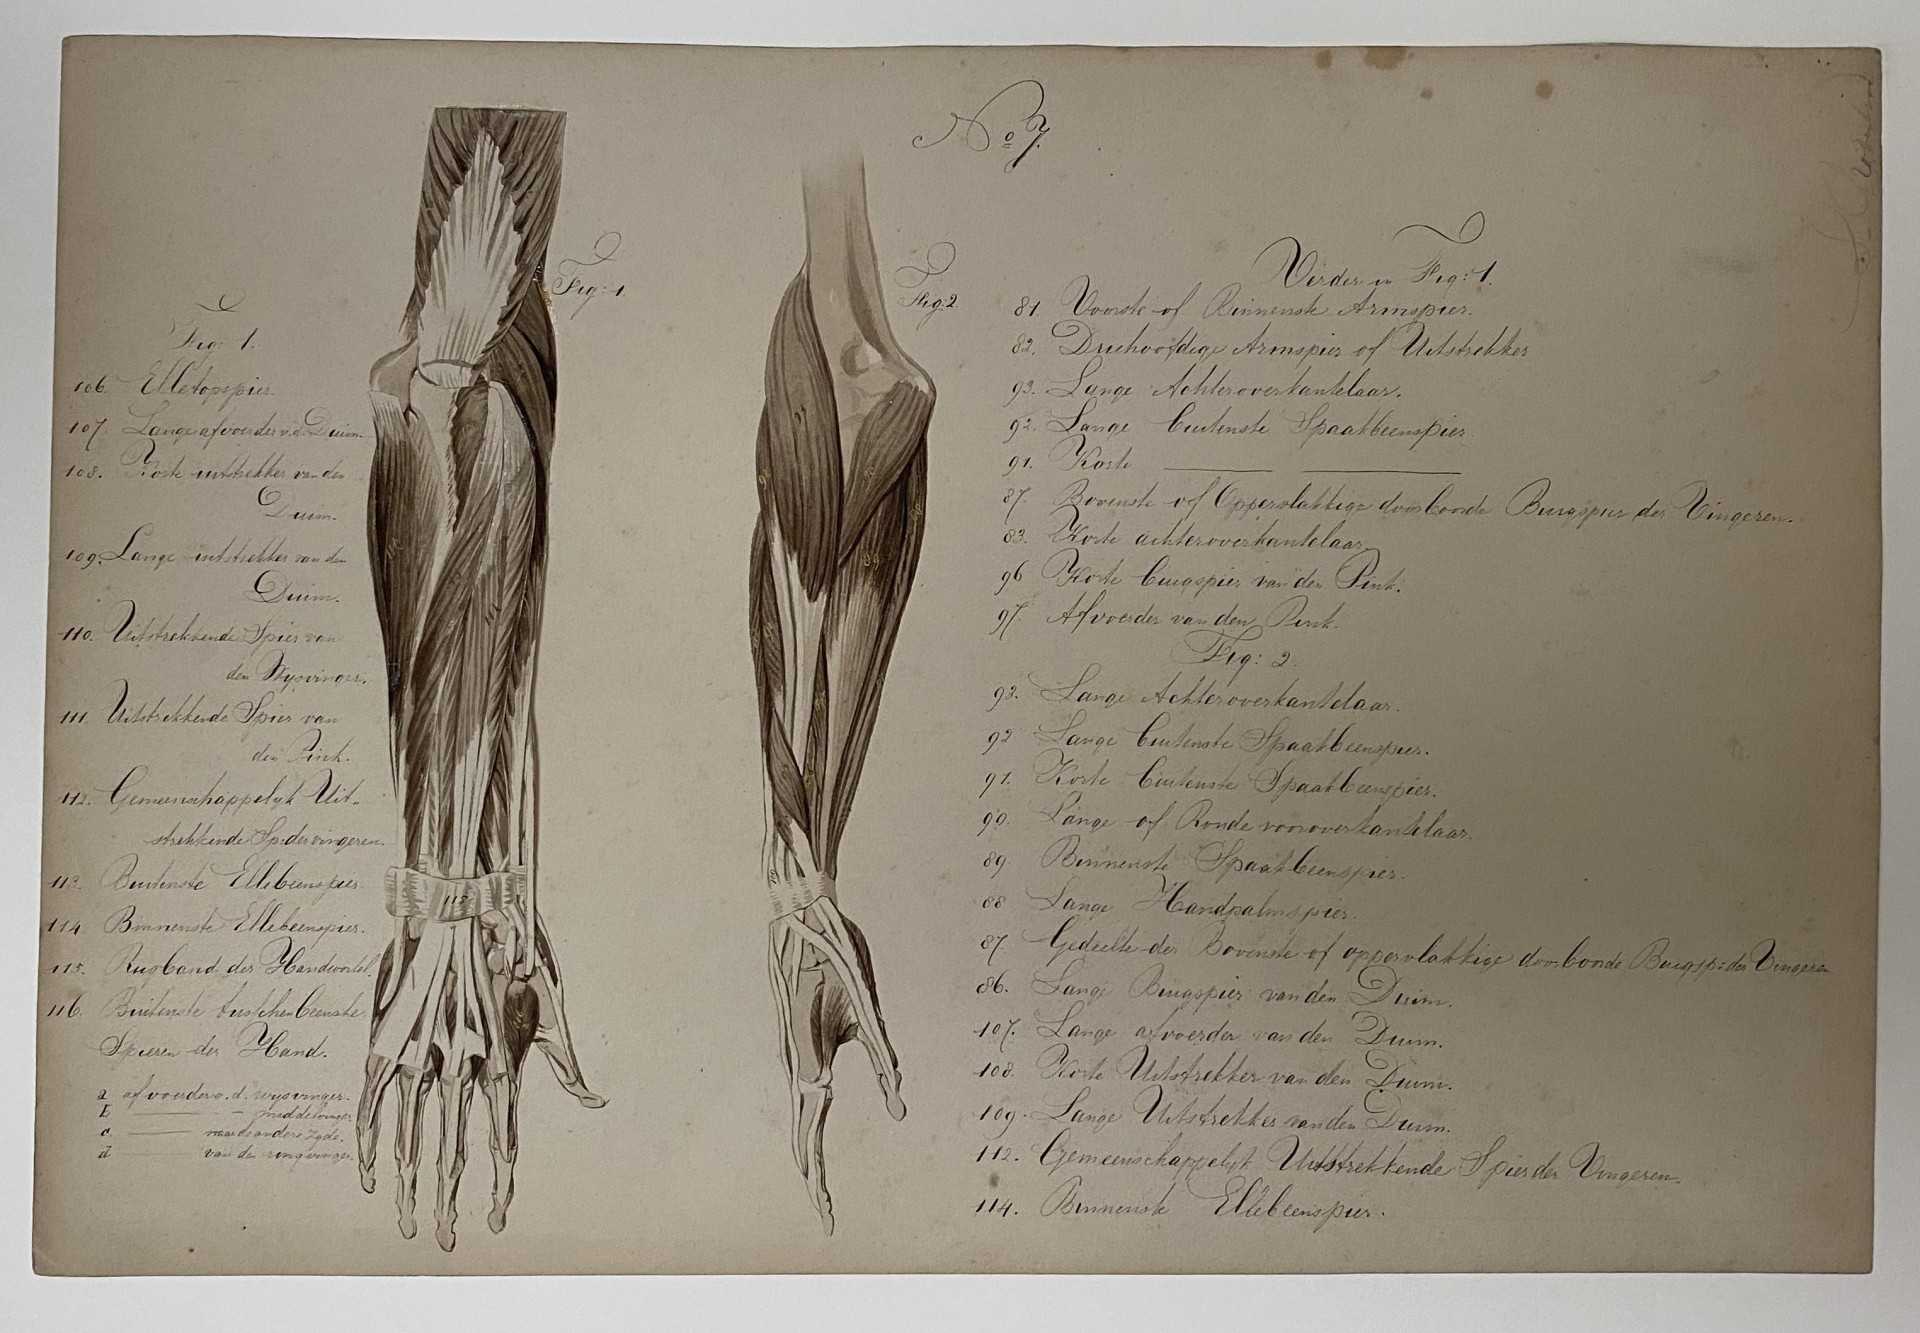 No 7.
Fig: 1
Fig: 2.
Fig: 1.
106. Elletopspier.
107. Lange afvoerder v.d. Duim.
108. Korte uitstrekker van den
Duim.
109. Lange uitstrekker van den
Duim.
110. Uitstrekkende Spier van
den Wysvinger.
111. Uitstrekkende Spier van
den Pink.
112. Gemeenschappelyk Uit-
strekkende Sp: der vingeren.
113. Buitenste Ellebeenspier.
114. Binnenste Ellebeenspier.
115. Rugband der Handwortel.
116. Buitenste tusschenbeenske
Spieren der Hand.
a afvoerder v. d. wysvinger.
b — — middelvinger
c. — naar de andere zyde.
d — van den ringvinger.
115
111
Verder in Fig: 1.
81. Voorste of Binnenste Armspier.
82. Driehoofdige Armspier of Uitstrekker
93. Lange Achteroverkantelaar.
92. Lange buitenste Spaakbeenspier
91. Korte — —
87. Bovenste of Oppervlakkige doorboorde Buigspier der Vingeren.
83. Korte achteroverkantelaar.
96 Korte buigspier van den Pink.
97. Afvoerder van den Pink.
Fig: 2.
93. Lange Achteroverkantelaar.
92 Lange buitenste Spaakbeenspier.
91. Korte buitenste Spaakbeenspier.
90. Lange of Ronde vooroverkantelaar.
89. Binnenste Spaakbeenspier.
88 Lange Handpalmspier.
87. Gedeelte der Bovenste of oppervlakkige doorboorde Buigsp: der Vingeren
86. Lange Buigspier van den Duim.
107. Lange afvoerder van den Duim.
108. Korte Uitstrekker van den Duim.
109. Lange Uitstrekker van den Duim.
112. Gemeenschappelyk Uitstrekkende Spier der Vingeren.
114. Binnenste Ellebeenspier.